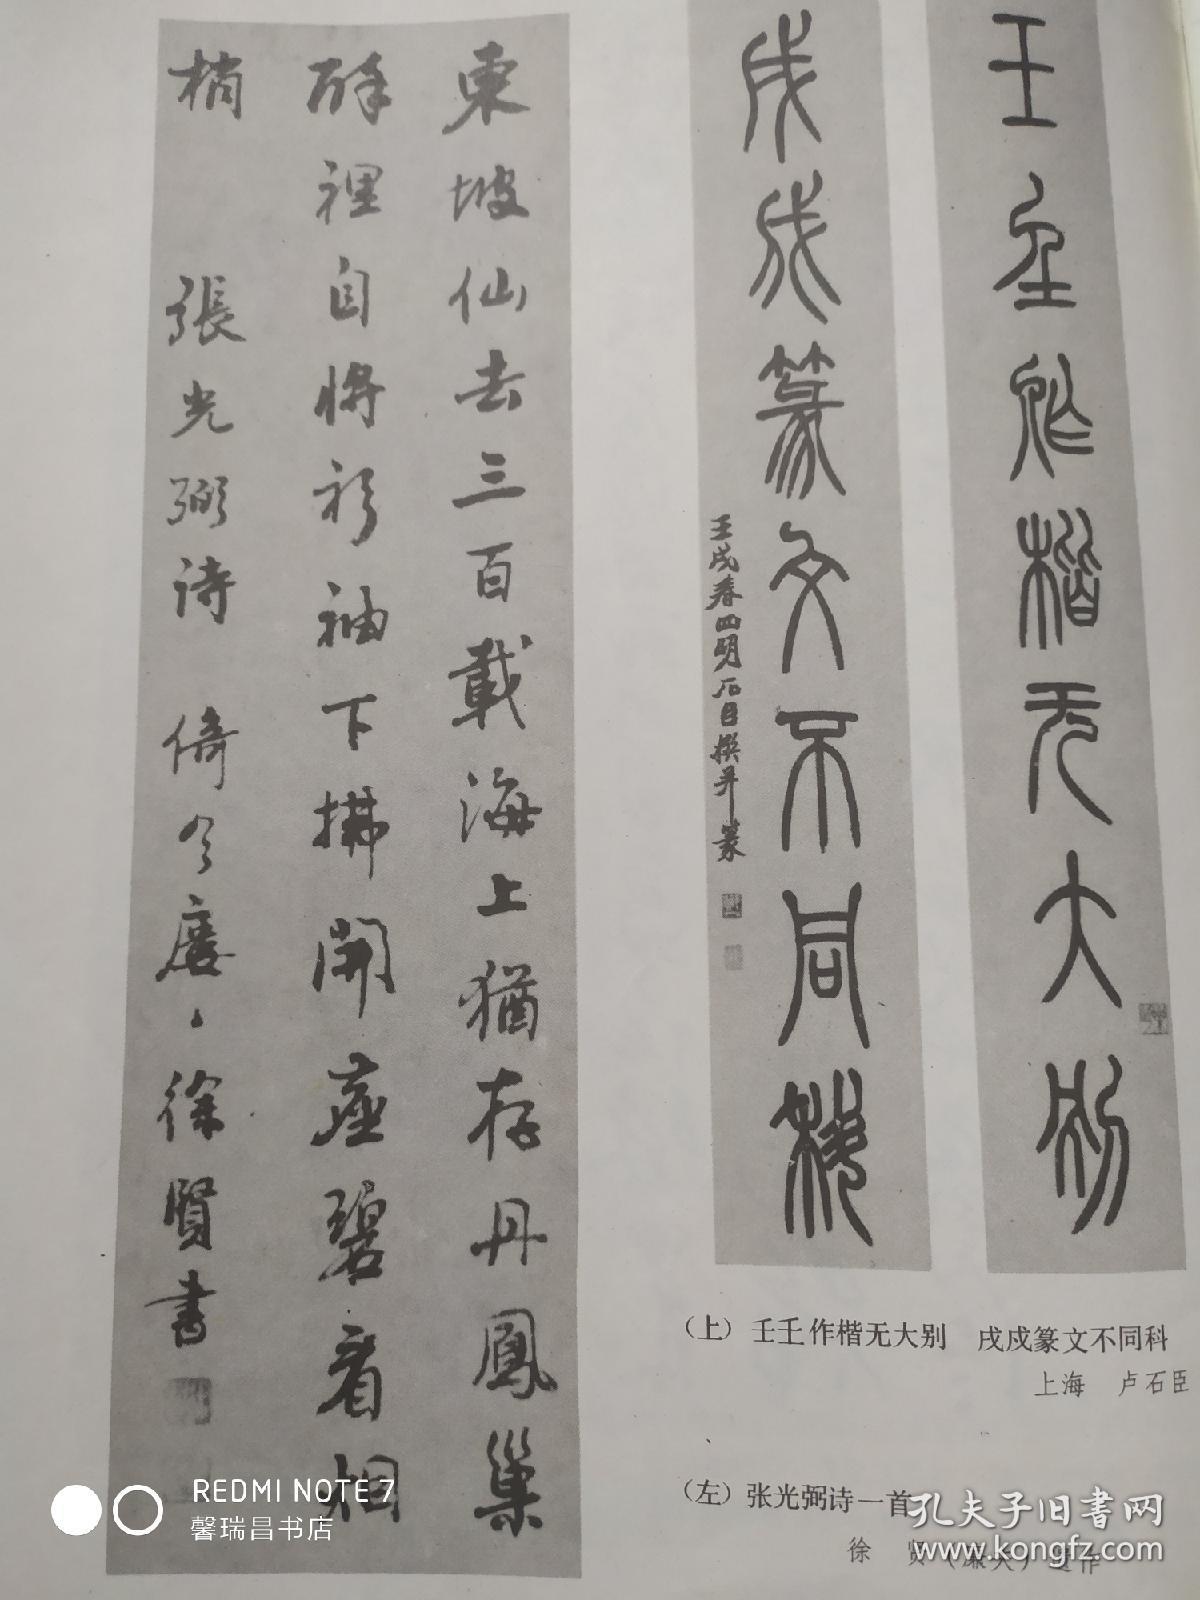 壬𡈼作楷无大别
戌戍篆文不同科
壬戌春四明石臣撰并篆
東坡仙去三百載海上猶存丹鳳巢
醉裡自將衫袖下拂開蒼碧看
梢 張光弼诗 徐賢書
(上) 壬𡈼作楷无大别 戌戍篆文不同科
上海 卢石臣
(左) 张光弼诗一首
徐 贤(廉夫)遗作
REDMI NOTE 7
馨瑞昌书店
孔夫子旧书网
www.kongfz.com